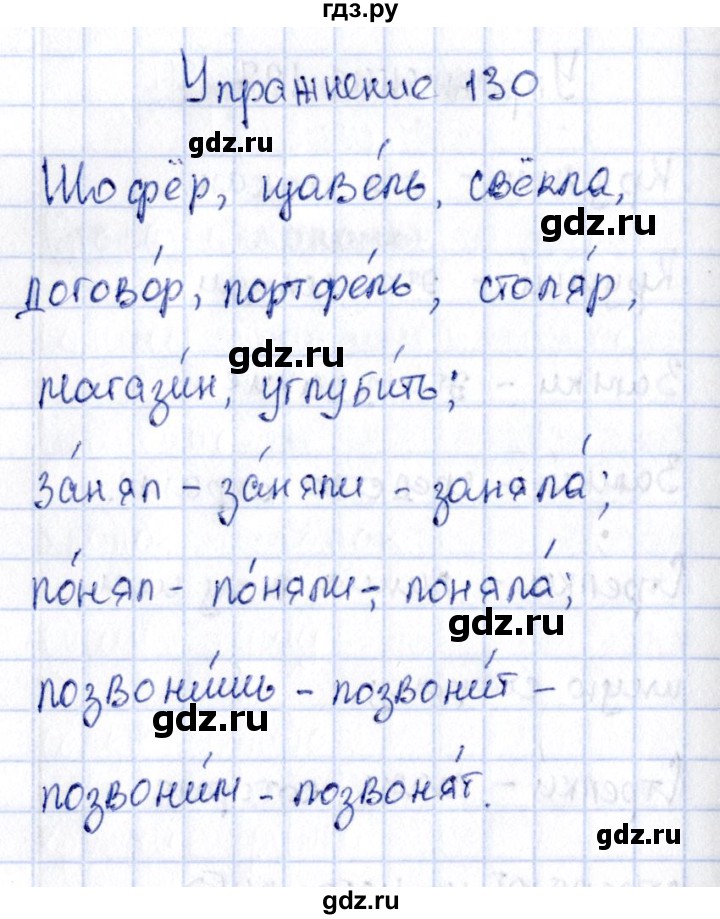 гдз.ру
Упражнение 130
gdz.ru
Шофёр, щаве́ль, свёкла,
gdz.ru
догово́р, портфе́ль, столя́р,
gdz.ru
магази́н, углуби́ть;
за́нял – за́няли – заняла́;
по́нял – по́няли –, поняла́;
gdz.ru
позвони́шь – позвони́т –
gdz.ru
позвони́м – позвоня́т.
gdz.ru
gdz.ru